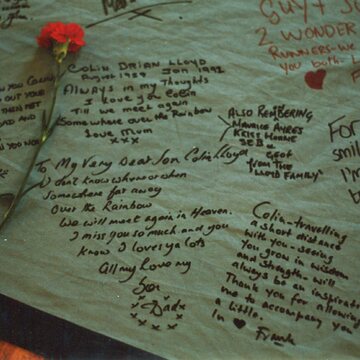 GUY & S
2 WONDER
RUNNERS-W
you both L
COLIN BRIAN LLOYD
August 1959 Jan 1992
Always in my Thoughts
I love you Colin
Till we meet again
Somewhere over the Rainbow
Love Mum
x x x
ALSO REMBERING
MAURICE AYRES
KRISS HORNE
SEB &
GEOF
"FROM THE
LLOYD FAMILY"
YOU COLIN
OUT YOUR
THEN MET
AND
YOU NOW
To My Very Dear Son Colin Lloyd
I don't know when or when
Somewhere far away
Over the Rainbow
We will meet again in Heaven.
I miss you so much and you
Know I loves ya lots
All my love my
Son
Dad
x x x x x
Colin-travelling
a short distance
with you-seeing
you grow in wisdom
and strength-will
always be an inspirat
Thank you for allowing
me to accompany you
a little.
In ♥
Frank
For
smil
I'm
b